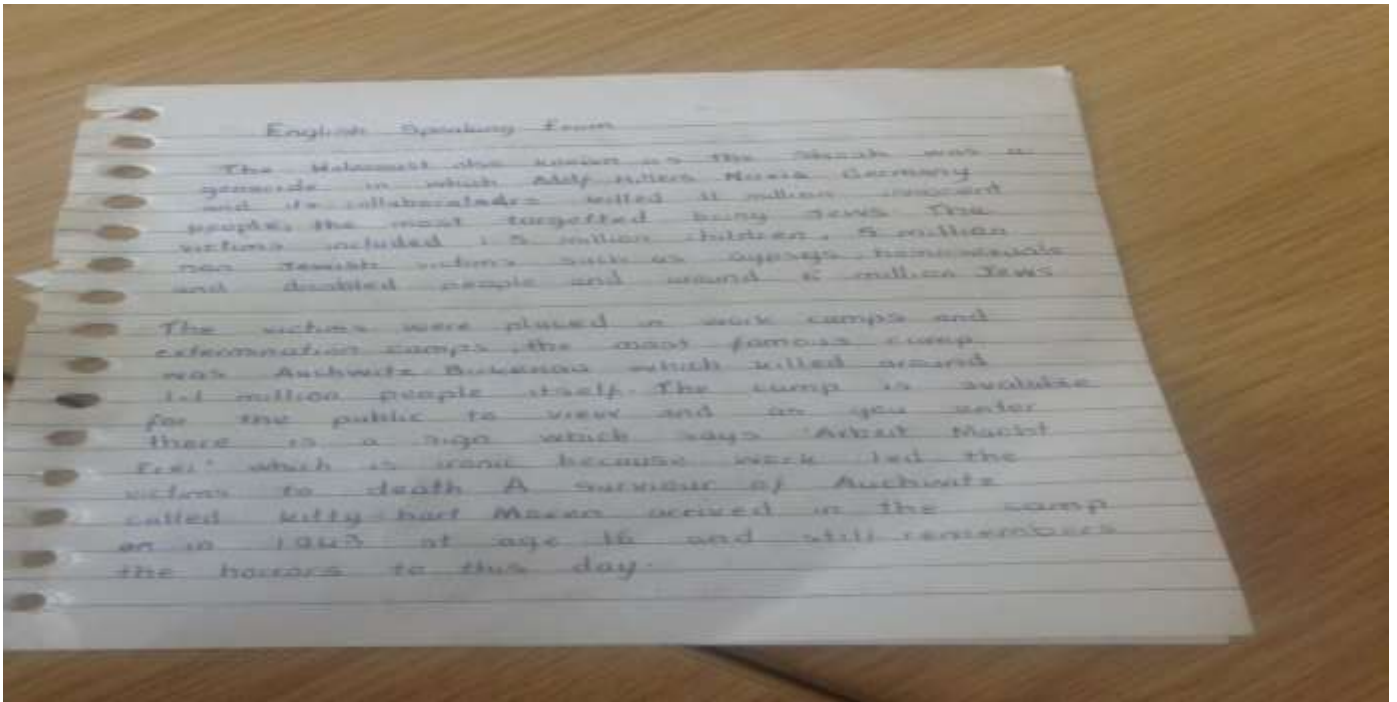 English Speaking Exam
The Holocaust also known as the Shoah was a
genocide in which Adolf Hitlers Nazis Germany
and its collaborators killed 11 million innocent
people, the most targetted being Jews The
victims included 1.5 million children, 5 million
non Jewish victims such as gypsys, homosexuals
and disabled people and around 6 million Jews
The victims were placed in work camps and
extermination camps, the most famous camp
was Auchwitz Birkenau which killed around
1.1 million people itself. The camp is
for the public to view and as you enter
there is a sign which says 'Arbeit Macht
Frei' which is ironic because work led the
victims to death A surviour of Auchwitz
called kitty hart Moxon arrived in the camp
in 1943 at age 16 and still remembers
the horrors to this day.